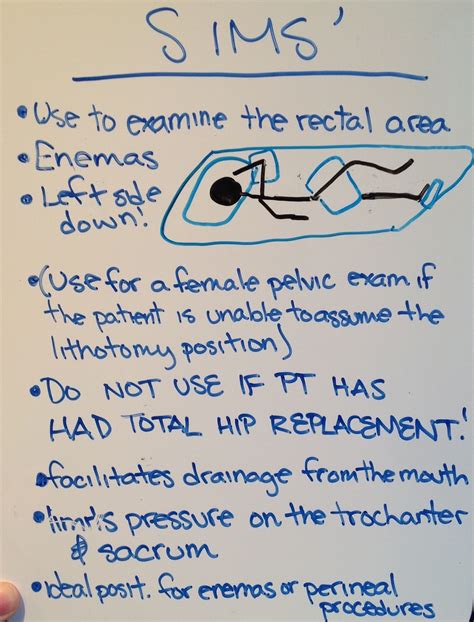 SIMS'
• Use to examine the rectal area
• Enemas
• Left side
down!
• (Use for a female pelvic exam if
the patient is unable to assume the
lithotomy position)
• DO NOT USE IF PT HAS
HAD TOTAL HIP REPLACEMENT!
• facilitates drainage from the mouth
• limits pressure on the trochanter
& sacrum
• ideal posit. for enemas or perineal
procedures